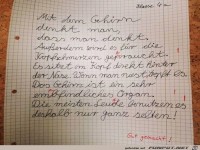 Klasse 4a
Mit dem Gehirn
denkt man,
dass man denkt.
Außerdem wird es für die
Kopfschmerzen gebraucht.
Es sitzt im Kopf direkt hinter
der Nase. Wenn man niest tropft es.
Das Gehirn ist ein sehr
empfindliches Organ.
Die meisten Leute benutzen es
deshalb nur ganz selten!
Gut gemacht!